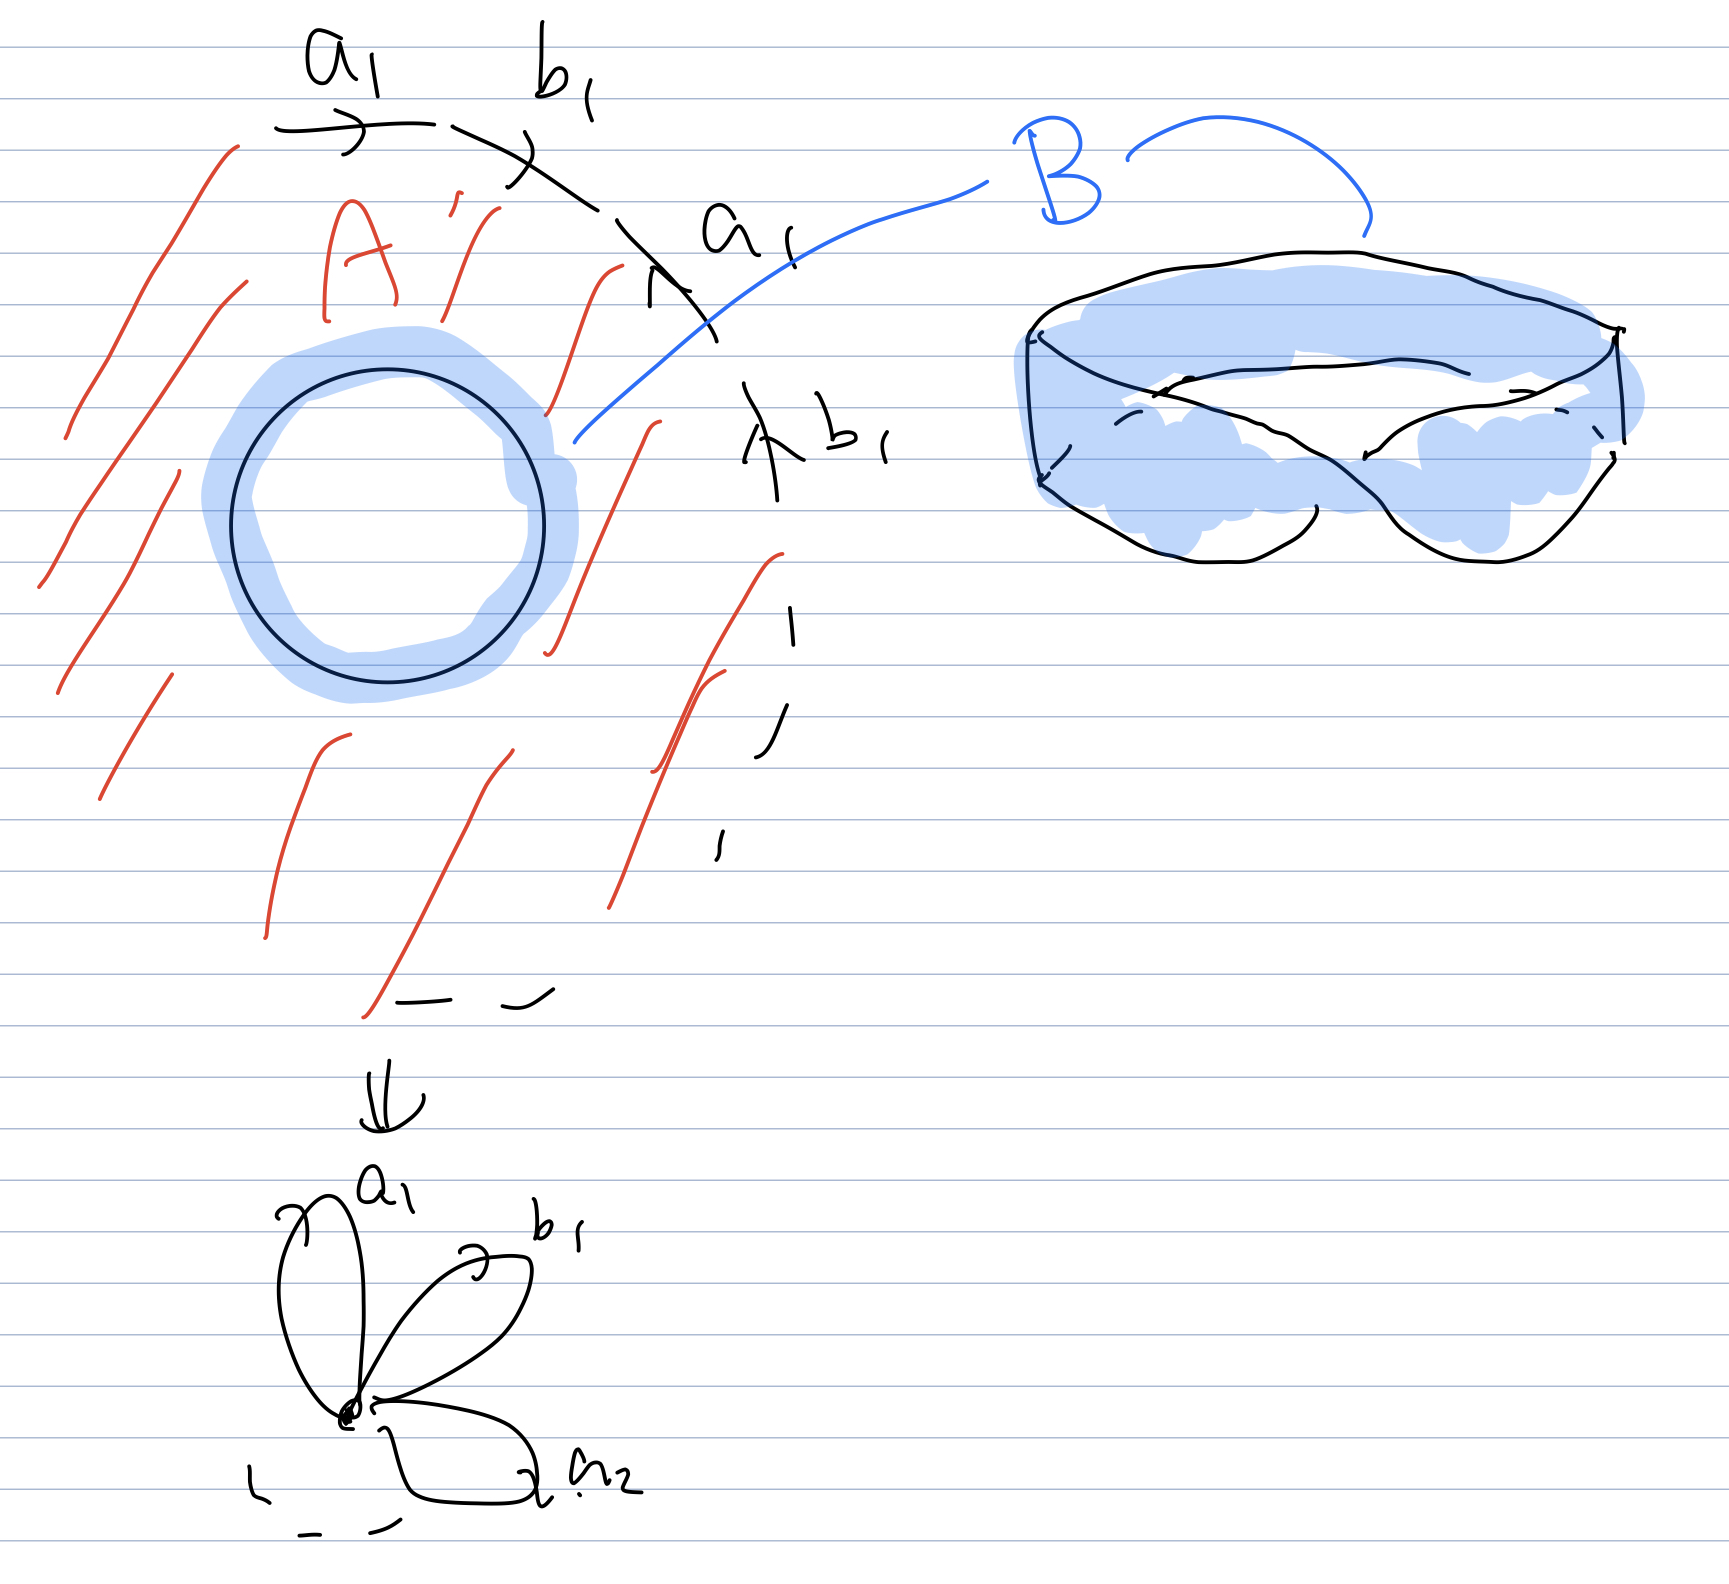 a₁ b₁
A
a₁
B
b₁
a₁
b₁
a₂